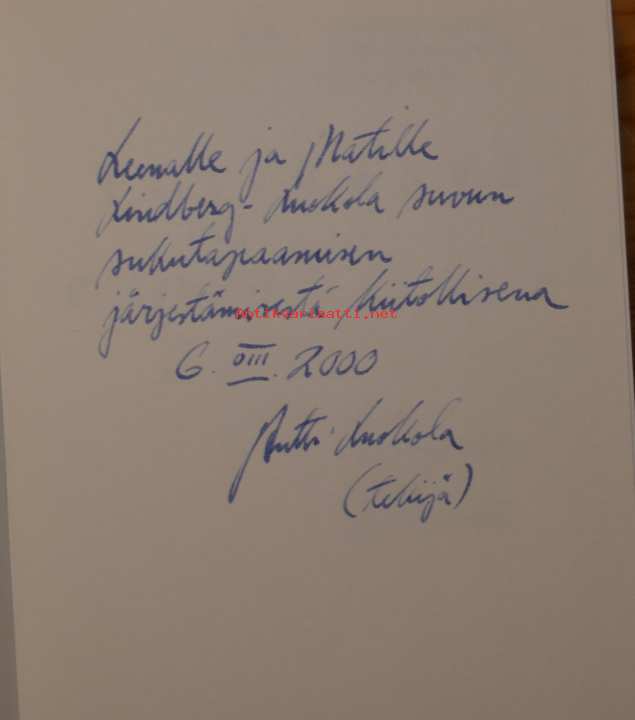 Leenalle ja Matille
Lindberg-Luokola suvun
sukutapaamisen
järjestämisestä kiitollisena
Antiikvariaatti.net
6. VIII. 2000
Antti Luokola
(tekijä)